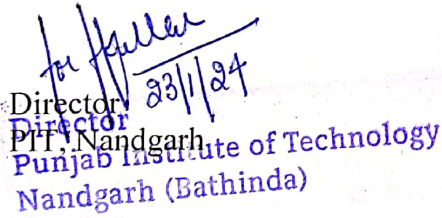 for
23/1/24
Director
PIT, Nandgarh
Director
Punjab Institute of Technology
Nandgarh (Bathinda)